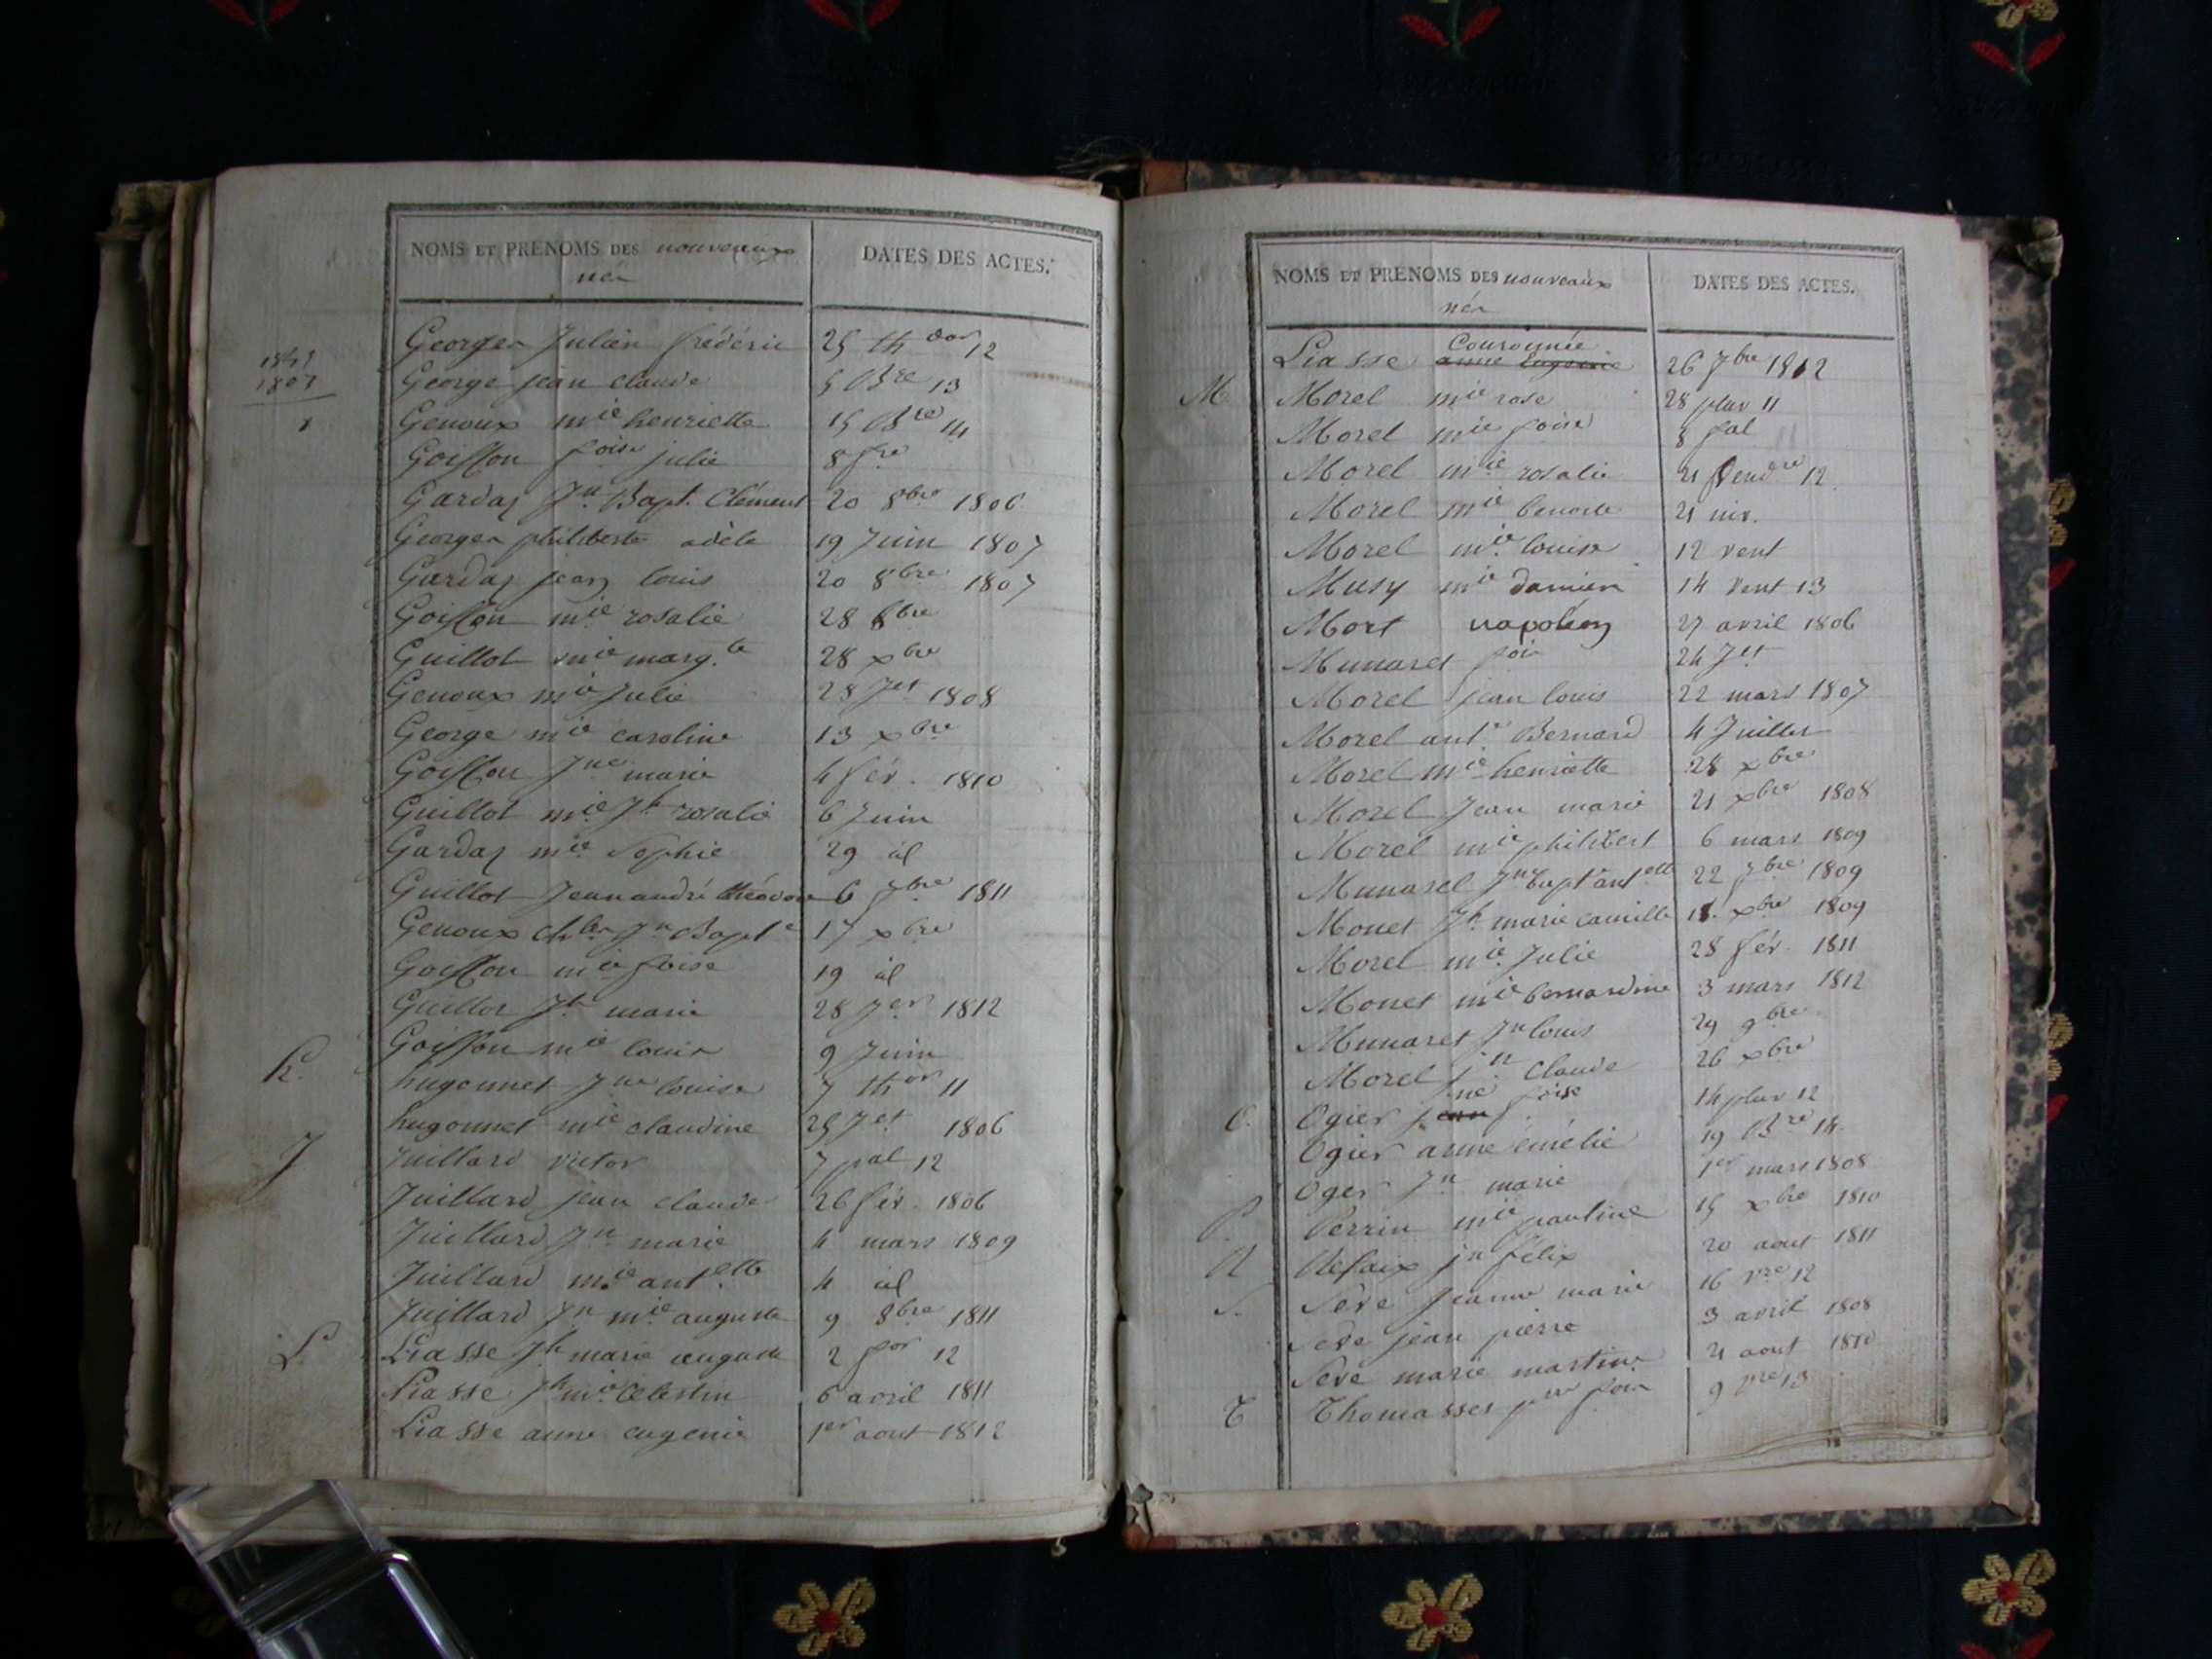 NOMS ET PRENOMS DES nouveaux
nés
DATES DES ACTES.
Georges Julien frédéric 25 th dor 12
1807
George jean claude 5 Bre 13
Genoux mie henriette 15 Bre 14
Goisson foise julie 8 fre
Gardaz Jn Bapt. Clément 20 8bre 1806
Georges philiberte adèle 19 Juin 1807
Gardaz jean louis 20 8bre 1807
Goisson mie rosalie 28 8bre
Guillot mie marg.te 28 xbre
Genoux mie Julie 28 Jet 1808
George mie caroline 13 xbre
Goisson Jne marie 4 fév. 1810
Guillot mie Jh rosalie 6 Juin
Gardaz mie Sophie 29 id
Guillot Jean andré théodore 6 7bre 1811
Genoux chles Jn Bapte 17 xbre
Goisson mie foise 19 id
Guillot Jh marie 28 Jer 1812
Goisson mie louise 9 Juin
h. hugonnet Jne louise 7 th or 11
hugonnet mie claudine 25 Jet 1806
J Juillard victor 7 pal 12
Juillard jean claude 26 fév. 1806
Juillard Jn marie 4 mars 1809
Juillard mie antette 4 id
Juillard Jn mie auguste 9 8bre 1811
L. Liasse Jh marie auguste 2 for 12
Liasse Jh mie Celestin 6 avril 1811
Liasse anne eugenie 1er aout 1812
NOMS ET PRENOMS DES nouveaux
nés
DATES DES ACTES.
Couronnée
Liasse anne Eugenie 26 7bre 1812
M Morel mie rose 28 pluv 11
Morel mie foise 8 fal
Morel mie rosalie 21 vendre 12
Morel mie benoite 21 niv.
Morel mie louise 12 vent
Musy mie damien 14 vent 13
Mort napoléon 27 avril 1806
Munaret fois 24 Jet
Morel jean louis 22 mars 1807
Morel ante Bernard 4 Juillet
Morel mie henriette 28 xbre
Morel Jean marie 21 xbre 1808
Morel mie philibert 6 mars 1809
Munaret Jn bapt antette 22 7bre 1809
Monet Jh marie camille xbre 1809
Morel mie Julie 28 fév. 1811
Monet mie bernardine 3 mars 1812
Munaret Jn louis 29 9bre
Morel jn Claude 26 xbre
ne foise
O. Ogier jean f. 14 pluv 12
Ogier anne émélie 19 Bre 14
Oger Jn marie 1er mars 1808
P. Perrin mie pauline 15 xbre 1810
R Refaix jn félix 20 aout 1811
S. Sève Jeanne marie 16 vre 12
Seve jean pierre 3 avril 1808
Sève marie martine 21 aout 1810
T Thomasset pre fois 9 vre 13